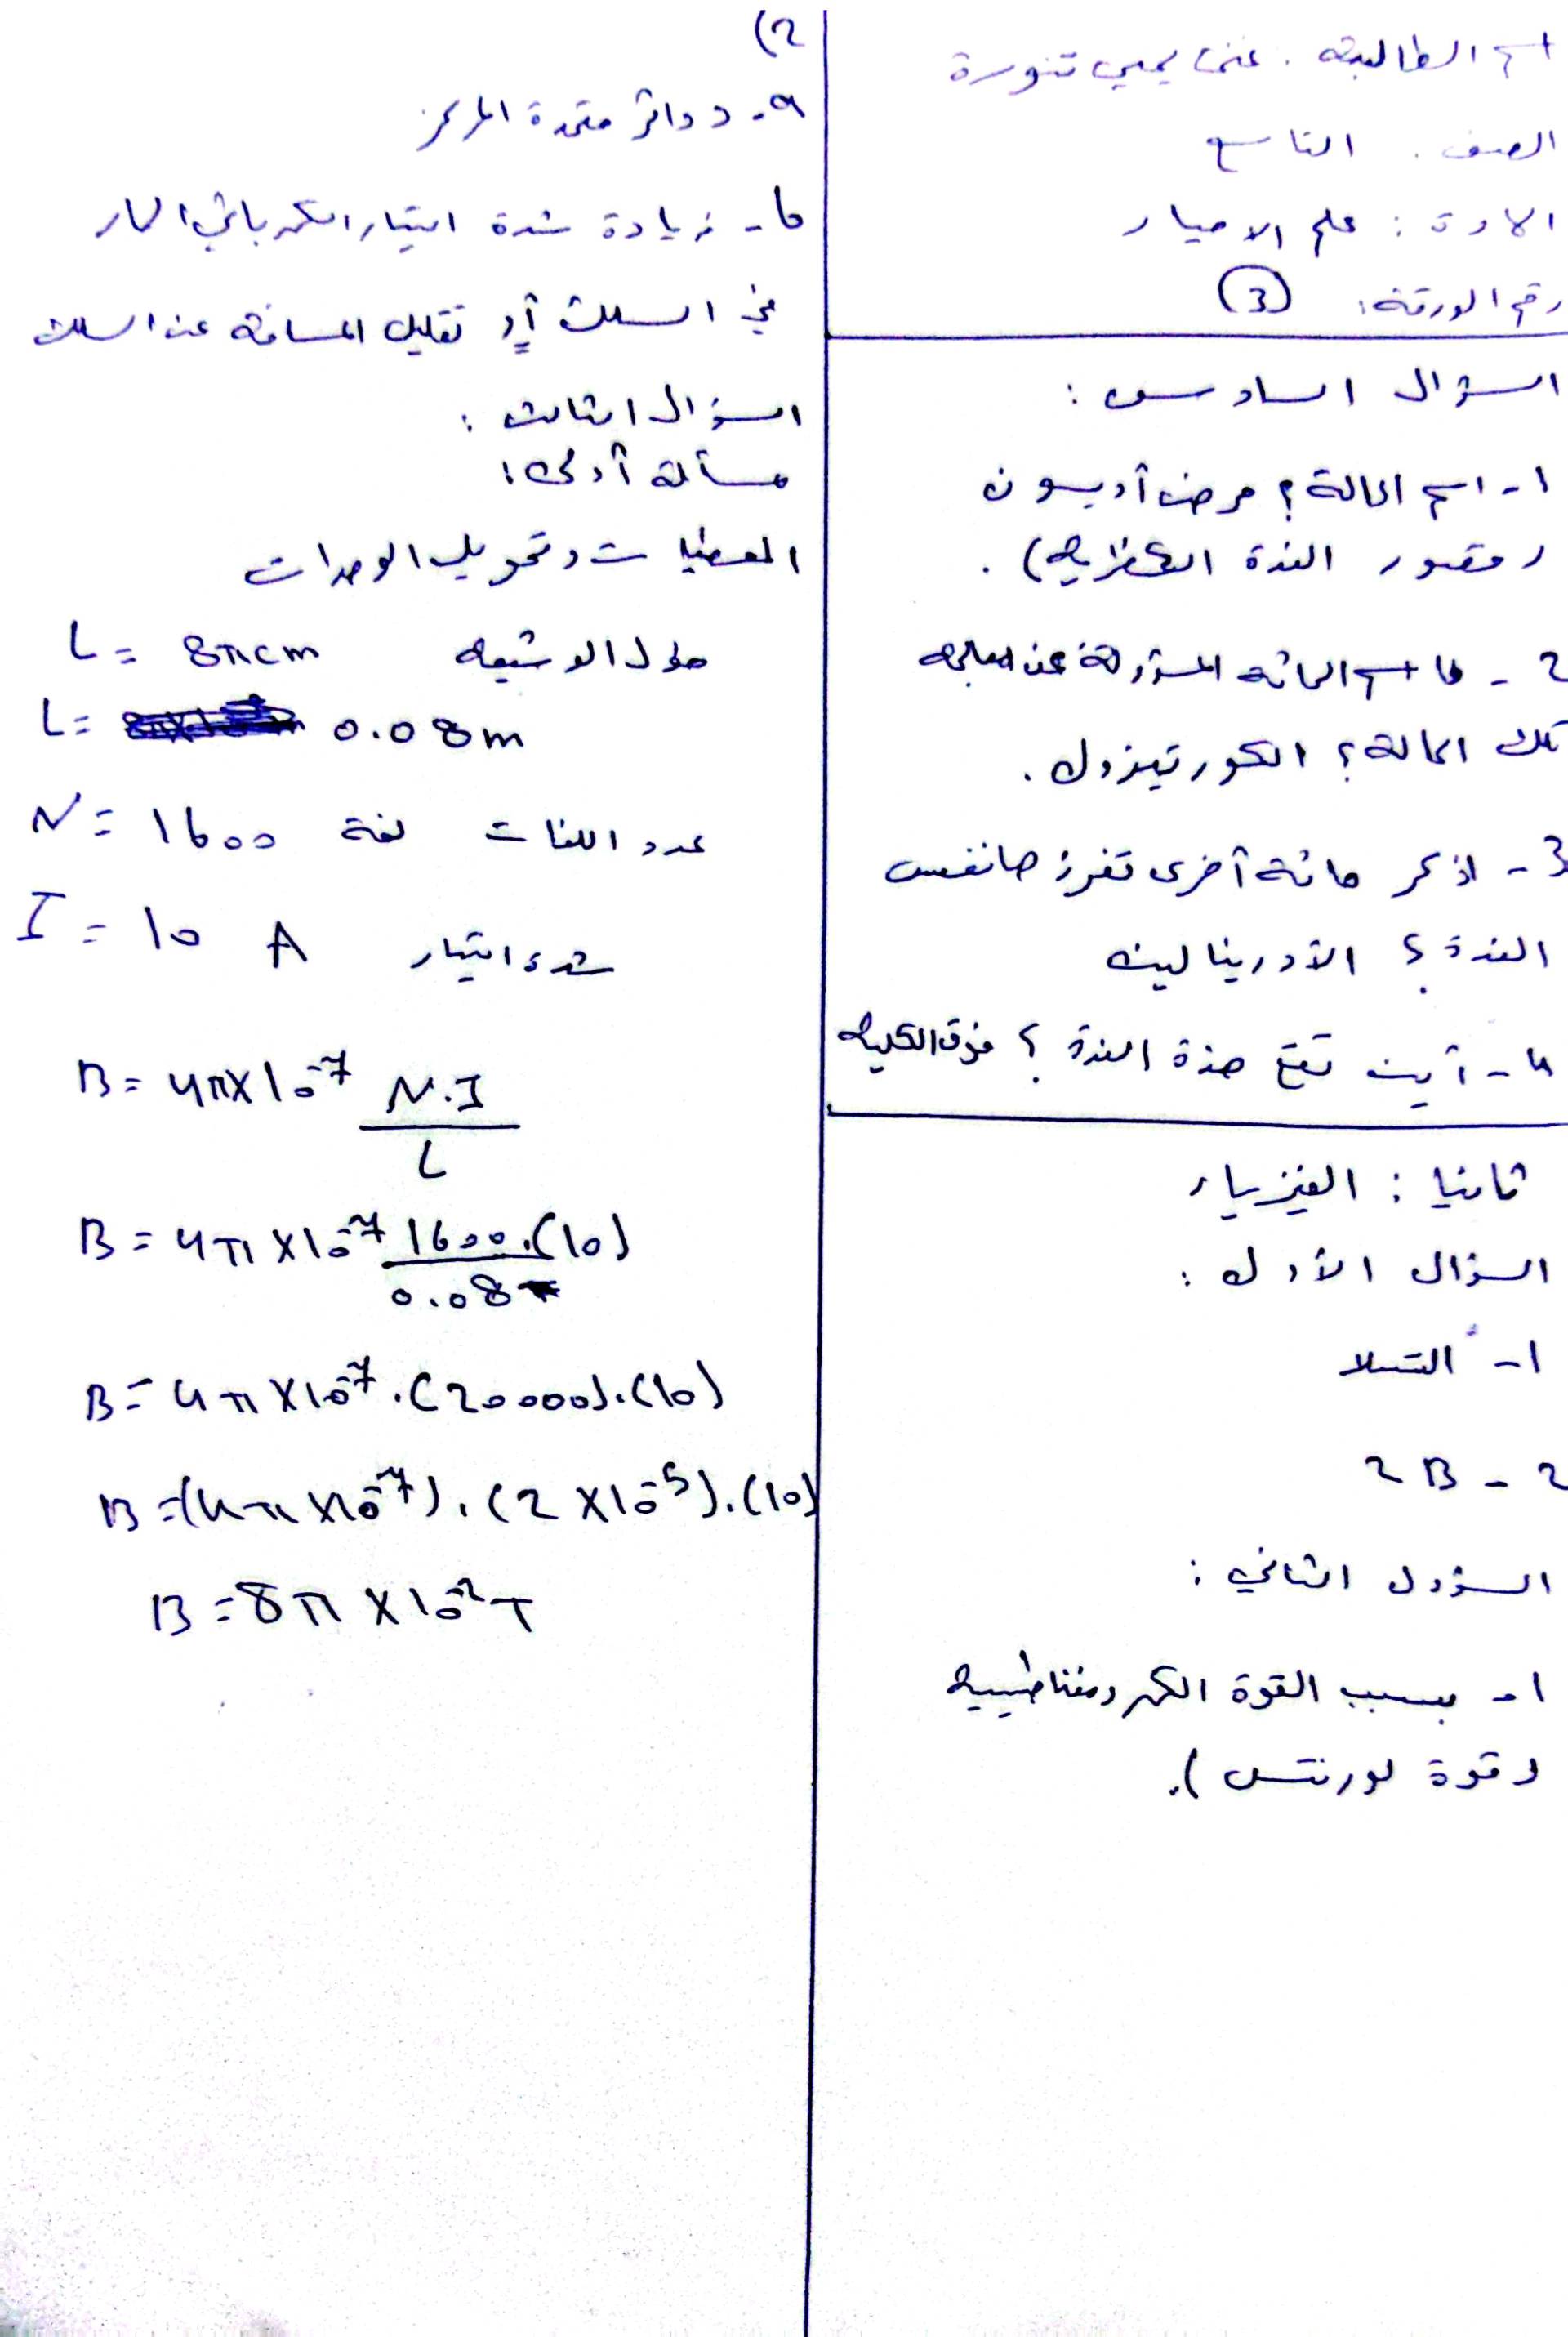 اسم الطالبة: غنى يحيى تنورة
الصف: التاسع
المادة: علم الاحياء
رقم الورقة: 3
السؤال السادس:
1- اسم الحالة؟ مرض أديسون
(قصور الغدة الكظرية).
2- ما اسم الحاثة المسؤولة عن
تلك الحالة؟ الكورتيزول.
3- اذكر حاثة أخرى تفرزها نفس
الغدة؟ الأدرينالين
4- أين تقع هذة الغدة؟ فوق الكلية
ثانيا: الفيزياء
السؤال الأول:
1- التسلا
2- 2B
السؤال الثاني:
1- بسبب القوة الكهرومغناطيسية
(قوة لورنتس).
2)
a- دوائر متحدة المركز
b- زيادة شدة التيار الكهربائي المار
في السلك أو تقليل المسافة عن السلك
السؤال الثالث:
مسألة أولى:
المعطيات وتحويل الوحدات
طول الوشيعة L = 8πcm
L = 0.08m
عدد اللفات لفة N = 1600
شدة التيار I = 10 A
B = 4π×10⁻⁷ N.I / L
B = 4π×10⁻⁷ 1600.(10) / 0.08
B = 4π×10⁻⁷.(20000).(10)
B = (4π×10⁻⁷).(2×10⁻⁵).(10)
B = 8π×10⁻² T